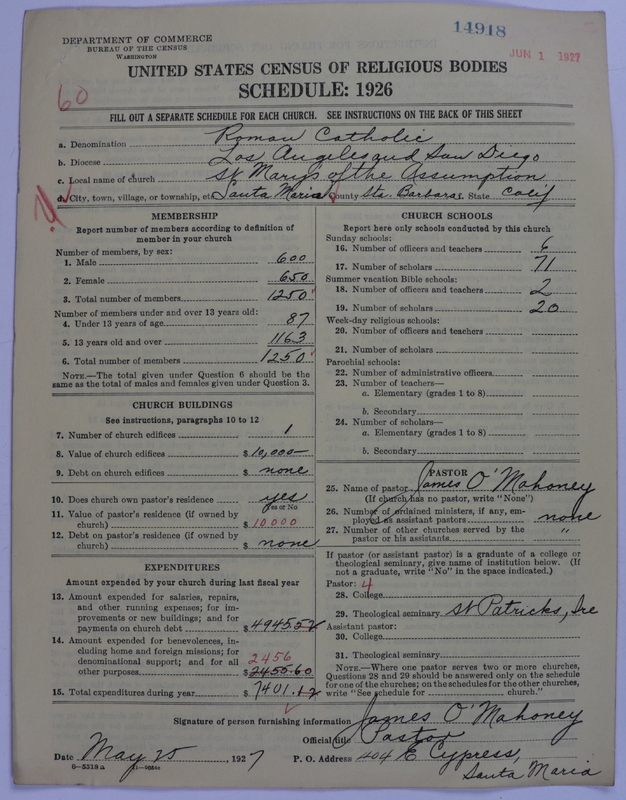 14918
JUN 1 1927
DEPARTMENT OF COMMERCE
BUREAU OF THE CENSUS
WASHINGTON
UNITED STATES CENSUS OF RELIGIOUS BODIES
SCHEDULE: 1926
60
FILL OUT A SEPARATE SCHEDULE FOR EACH CHURCH. SEE INSTRUCTIONS ON THE BACK OF THIS SHEET
a. Denomination Roman Catholic
b. Diocese Los Angeles and San Diego
c. Local name of church St Marys of the Assumption
d. City, town, village, or township, etc Santa Maria County Sta. Barbara State Calif
MEMBERSHIP
Report number of members according to definition of
member in your church
Number of members, by sex:
1. Male 600
2. Female 650
3. Total number of members 1250
Number of members under and over 13 years old:
4. Under 13 years of age 87
5. 13 years old and over 1163
6. Total number of members 1250
NOTE.—The total given under Question 6 should be the
same as the total of males and females given under Question 3.
CHURCH BUILDINGS
See instructions, paragraphs 10 to 12
7. Number of church edifices 1
8. Value of church edifices $ 10,000
9. Debt on church edifices $ none
10. Does church own pastor's residence yes
Yes or No
11. Value of pastor's residence (if owned by
church) $ 10000
12. Debt on pastor's residence (if owned by
church) $ none
EXPENDITURES
Amount expended by your church during last fiscal year
13. Amount expended for salaries, repairs,
and other running expenses; for im-
provements or new buildings; and for
payments on church debt $ 4945.52
14. Amount expended for benevolences, in-
cluding home and foreign missions; for
denominational support; and for all 2456
other purposes $ 2455.60
15. Total expenditures during year $ 7401.12
CHURCH SCHOOLS
Report here only schools conducted by this church
Sunday schools:
16. Number of officers and teachers 6
17. Number of scholars 71
Summer vacation Bible schools:
18. Number of officers and teachers 2
19. Number of scholars 20
Week-day religious schools:
20. Number of officers and teachers
21. Number of scholars
Parochial schools:
22. Number of administrative officers
23. Number of teachers—
a. Elementary (grades 1 to 8)
b. Secondary
24. Number of scholars—
a. Elementary (grades 1 to 8)
b. Secondary
PASTOR
25. Name of pastor James O'Mahoney
(If church has no pastor, write "None")
26. Number of ordained ministers, if any, em-
ployed as assistant pastors none
27. Number of other churches served by the
pastor or his assistants "
If pastor (or assistant pastor) is a graduate of a college or
theological seminary, give name of institution below. (If
not a graduate, write "No" in the space indicated.)
Pastor: 4
28. College
29. Theological seminary St Patricks, Ire
Assistant pastor:
30. College
31. Theological seminary
NOTE.—Where one pastor serves two or more churches,
Questions 28 and 29 should be answered only on the schedule
for one of the churches; on the schedules for the other churches,
write "See schedule for church."
Signature of person furnishing information James O'Mahoney
Official title Pastor
Date May 25, 1927 P. O. Address 404 E Cypress,
Santa Maria
6—5318 a